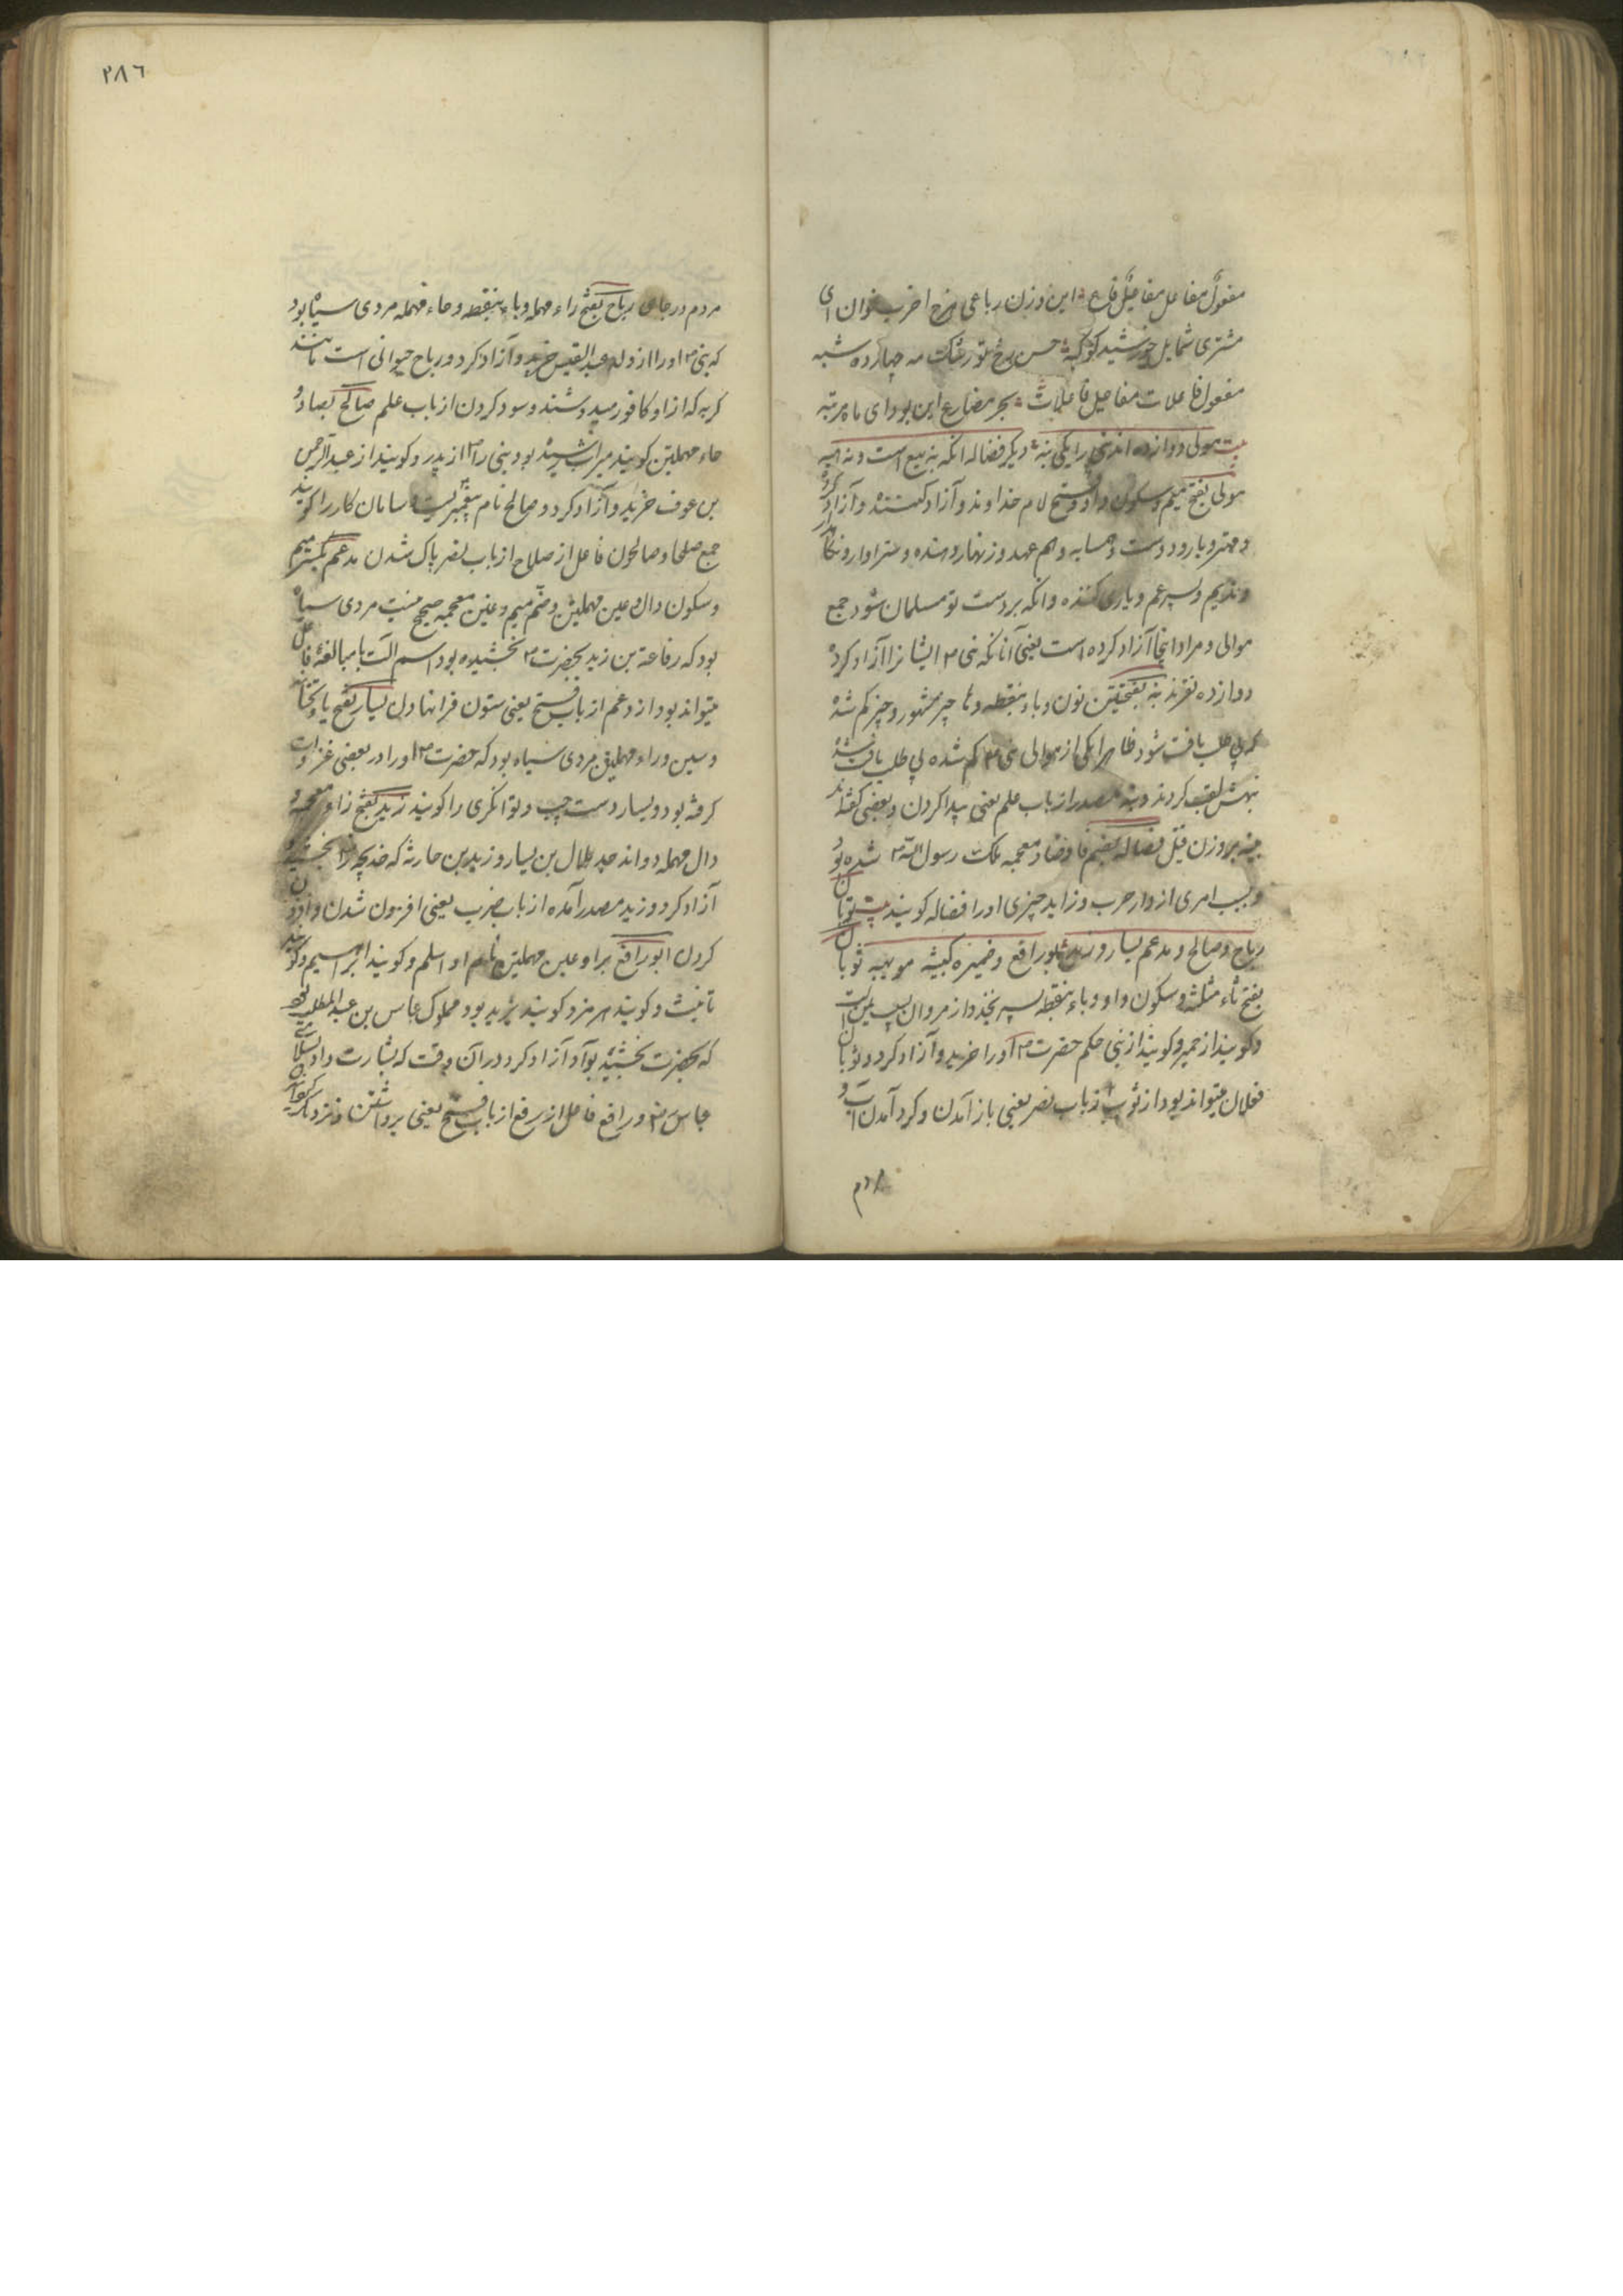 مفعول مفاعل مفاعیل فاع این وزن رباعی هزج اخرب خوان ای
مشتری شمایل خورشید کوکبه حسن رخ تو رشک مه چهارده شبه
مفعول فاعلات مفاعیل فاعلات بحر مضارع این بود ای ماه مرتبه
بیت مولی دوازده اند نبی را یکی نبه دیگر فضاله انکه نه بیع است و نه هبه
مولی بفتح میم و سکون واو و فتح لام خداوند و آزاد کننده و آزاد کرده
و مهتر و یار و دوست و همسایه و هم عهد و زنهار دهنده و سزاوار و نکاهدار
و ندیم و پسر عم و یاری کننده و انکه بر دست تو مسلمان شود جمع
موالی و مراد اینجا آزاد کرده است یعنی آنانکه نبی ۳ ایشانرا آزاد کرده
دوازده نفرند نبه بفتحتین نون و باء بنقطه و ها چیز مشهور و چیز کم شده
که بی طلب یافت شود ظاهرا یکی از موالی نبی ۳ کم شده بی طلب یافت شده
نبهش لقب کردند و نبه مصدر از باب علم یعنی پیدا کردن و بعضی گفته اند
نبیه بر وزن فیل فضاله بضم فا و ضاد معجمه ملک رسول الله ۳ شده بود
و بسبب امری از دار حرب و زاید چیزی او را فضاله کویند بیت ثوبان
رباح و صالح و مدعم یسار و زید ابو رافع و ضمیره کبشه مویهبه ثوبان
بفتح ثاء مثلثه و سکون واو و باء بنقطه پسر بجدد از مروان
و کویند از حمیر و کویند از بنی حکم حضرت ۳ او را خرید و آزاد کرد و ثوبان
فعلان میتواند بود از ثوب از باب نصر یعنی باز آمدن و کرد آمدن آب و
مردم
۲۸٦
مردم در جای رباح بفتح راء مهمله و باء بنقطه و حاء مهمله مردی سیاه بود
که نبی ۳ او را از ولد عبد القیس خرید و آزاد کرد و رباح حیوانی است مانند
کربه که از او کافور میدوشند و سود کردن از باب علم صالح بصاد و
حاء مهملتین کویند میراث رسیده بود نبی را ۳ از پدر و کویند از عبد الرحمن
بن عوف خرید و آزاد کرد و صالح نام پیغمبریست و سامان کار را کویند
جمع صلحا و صالحون فاعل از صلاح از باب نصر پاک شدن مدعم بکسر میم
و سکون دال و عین مهملتین و ضم میم و غین معجمه صحیح نیست مردی سیاه
بود که رفاعة بن زید بحضرت ۳ بخشیده بود اسم آلت یا مبالغه فاعل
میتواند بود از دعم از باب فتح یعنی ستون فرا نهادن یسار بفتح یاء تحتانی
و سین و راء مهملتین مردی سیاه بود که حضرت ۳ او را در بعضی غزوات
کرفته بود و یسار دست چپ و توانکری را کویند زید بفتح زاء معجمه و
دال مهمله دو اند جد بلال بن یسار و زید بن حارثه که خدیجه رض بخشید و
آزاد کرد و زید مصدر آمده از باب ضرب یعنی افزون شدن و افزون
کردن ابو رافع براء و عین مهملتین نام او اسلم و کویند ابراهیم و کویند
ثابت و کویند هرمز و کویند یزید بود مملوک عباس بن عبد المطلب بود
که بحضرت بخشید او را آزاد کرد در آن وقت که بشارت داد باسلام
عباس رض و رافع فاعل از رفع از باب فتح یعنی برداشتن و نزدیک